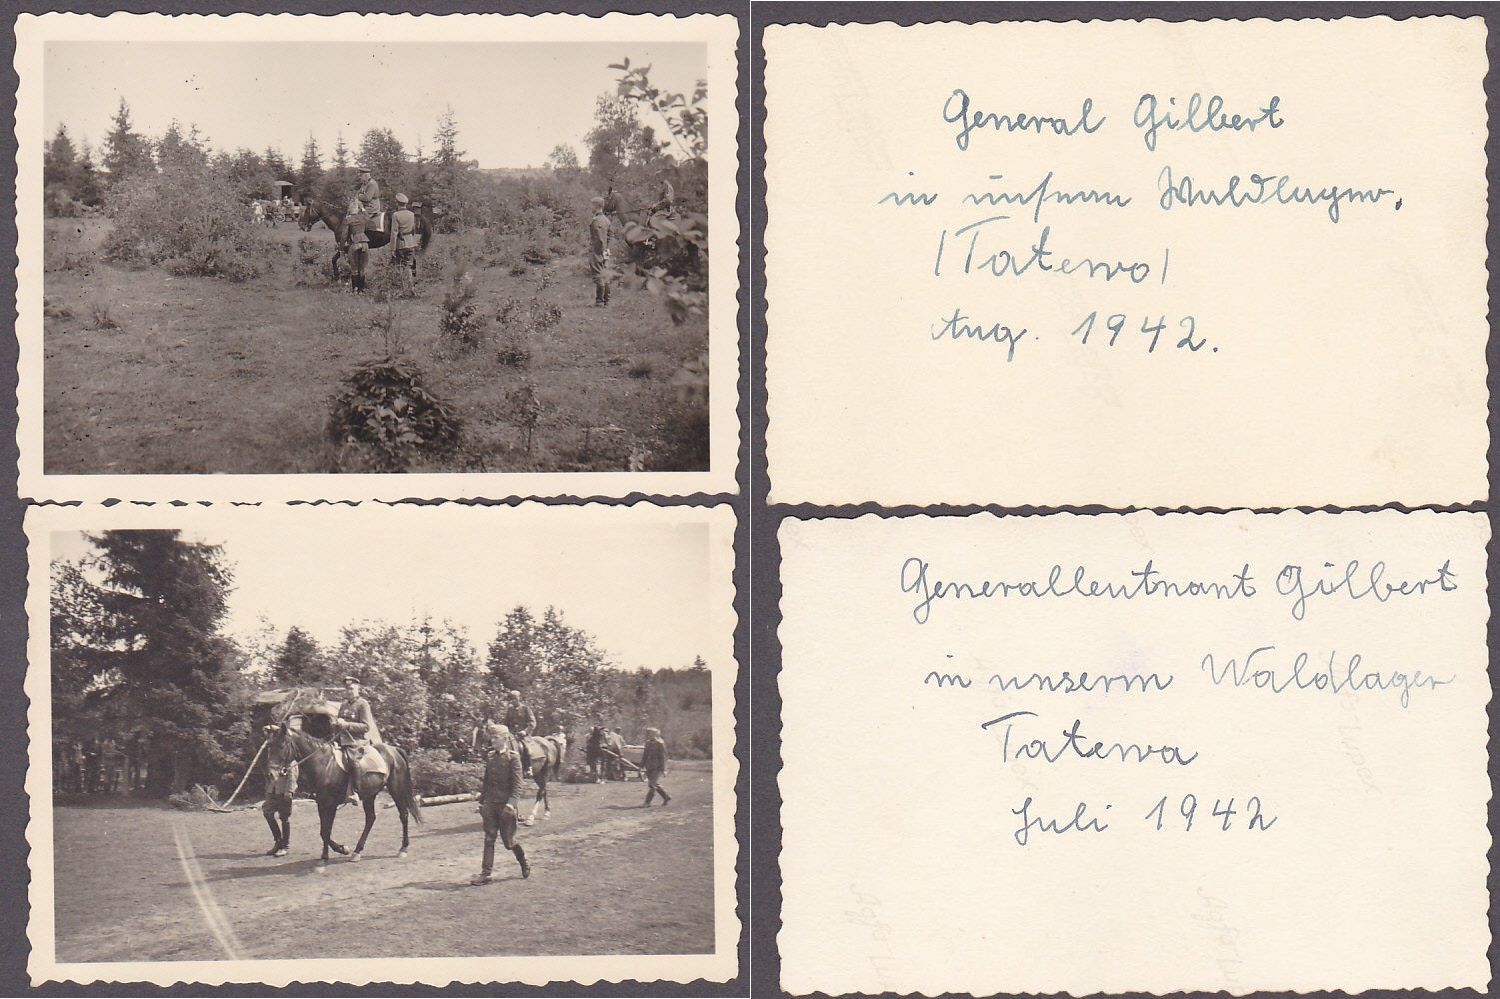 General Gilbert
in unserm Waldlager.
|Tatewo|
Aug. 1942.
Generalleutnant Gilbert
in unserm Waldlager
Tatewa
Juli 1942